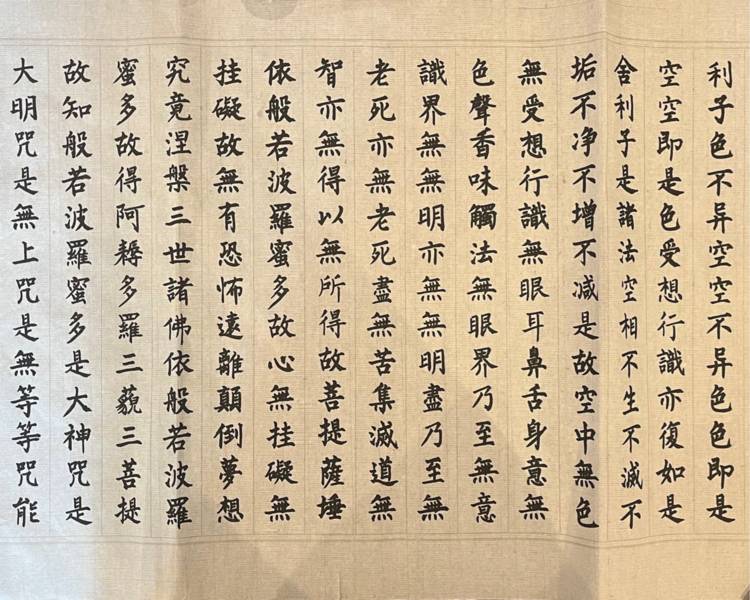 利子色不异空空不异色色即是
空空即是色受想行識亦復如是
舍利子是諸法空相不生不滅不
垢不净不增不减是故空中無色
無受想行識無眼耳鼻舌身意無
色聲香味觸法無眼界乃至無意
識界無無明亦無無明盡乃至無
老死亦無老死盡無苦集滅道無
智亦無得以無所得故菩提薩埵
依般若波羅蜜多故心無挂礙無
挂礙故無有恐怖遠離顛倒夢想
究竟涅槃三世諸佛依般若波羅
蜜多故得阿耨多羅三藐三菩提
故知般若波羅蜜多是大神咒是
大明咒是無上咒是無等等咒能